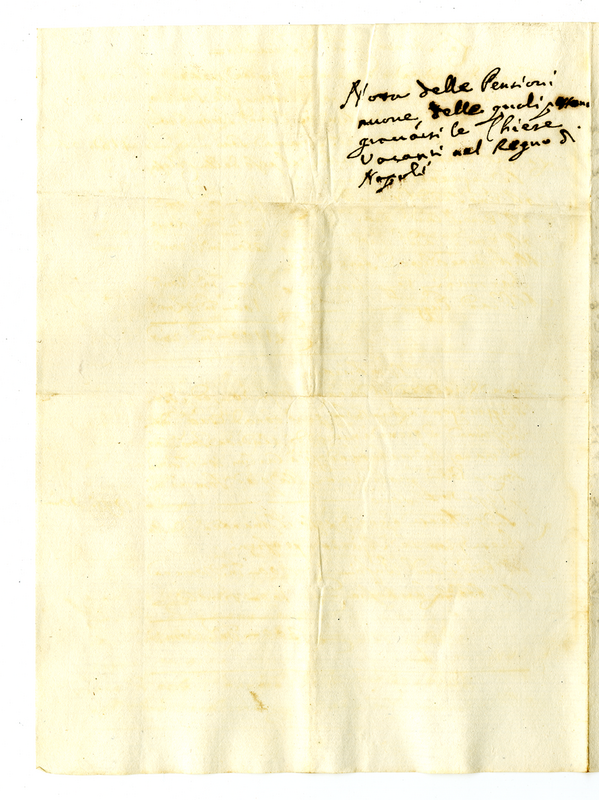 Nota delle Pensioni
nuove, delle quali
gravarsi le Chiese
Vacanti nel Regno di
Napoli